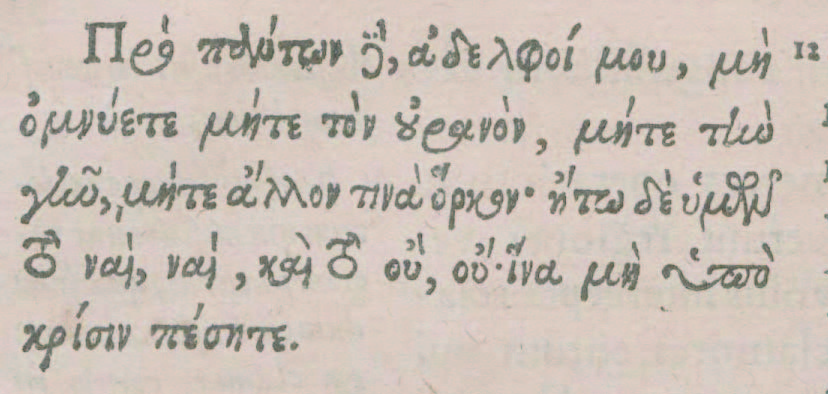 Πρὸ πάντων δὲ, ἀδελφοί μου, μὴ 12
ὀμνύετε μήτε τὸν οὐρανὸν, μήτε τὴν
γῆν, μήτε ἄλλον τινὰ ὅρκον· ἤτω δὲ ὑμῶν
τὸ ναὶ, ναὶ, καὶ τὸ οὒ, οὔ· ἵνα μὴ ὑπὸ
κρίσιν πέσητε.